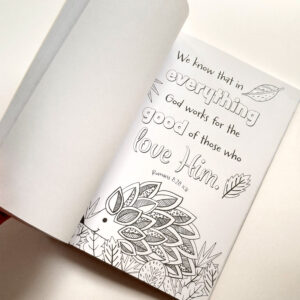 We know that in
everything
God works for the
good of those who
love Him.
Romans 8:28